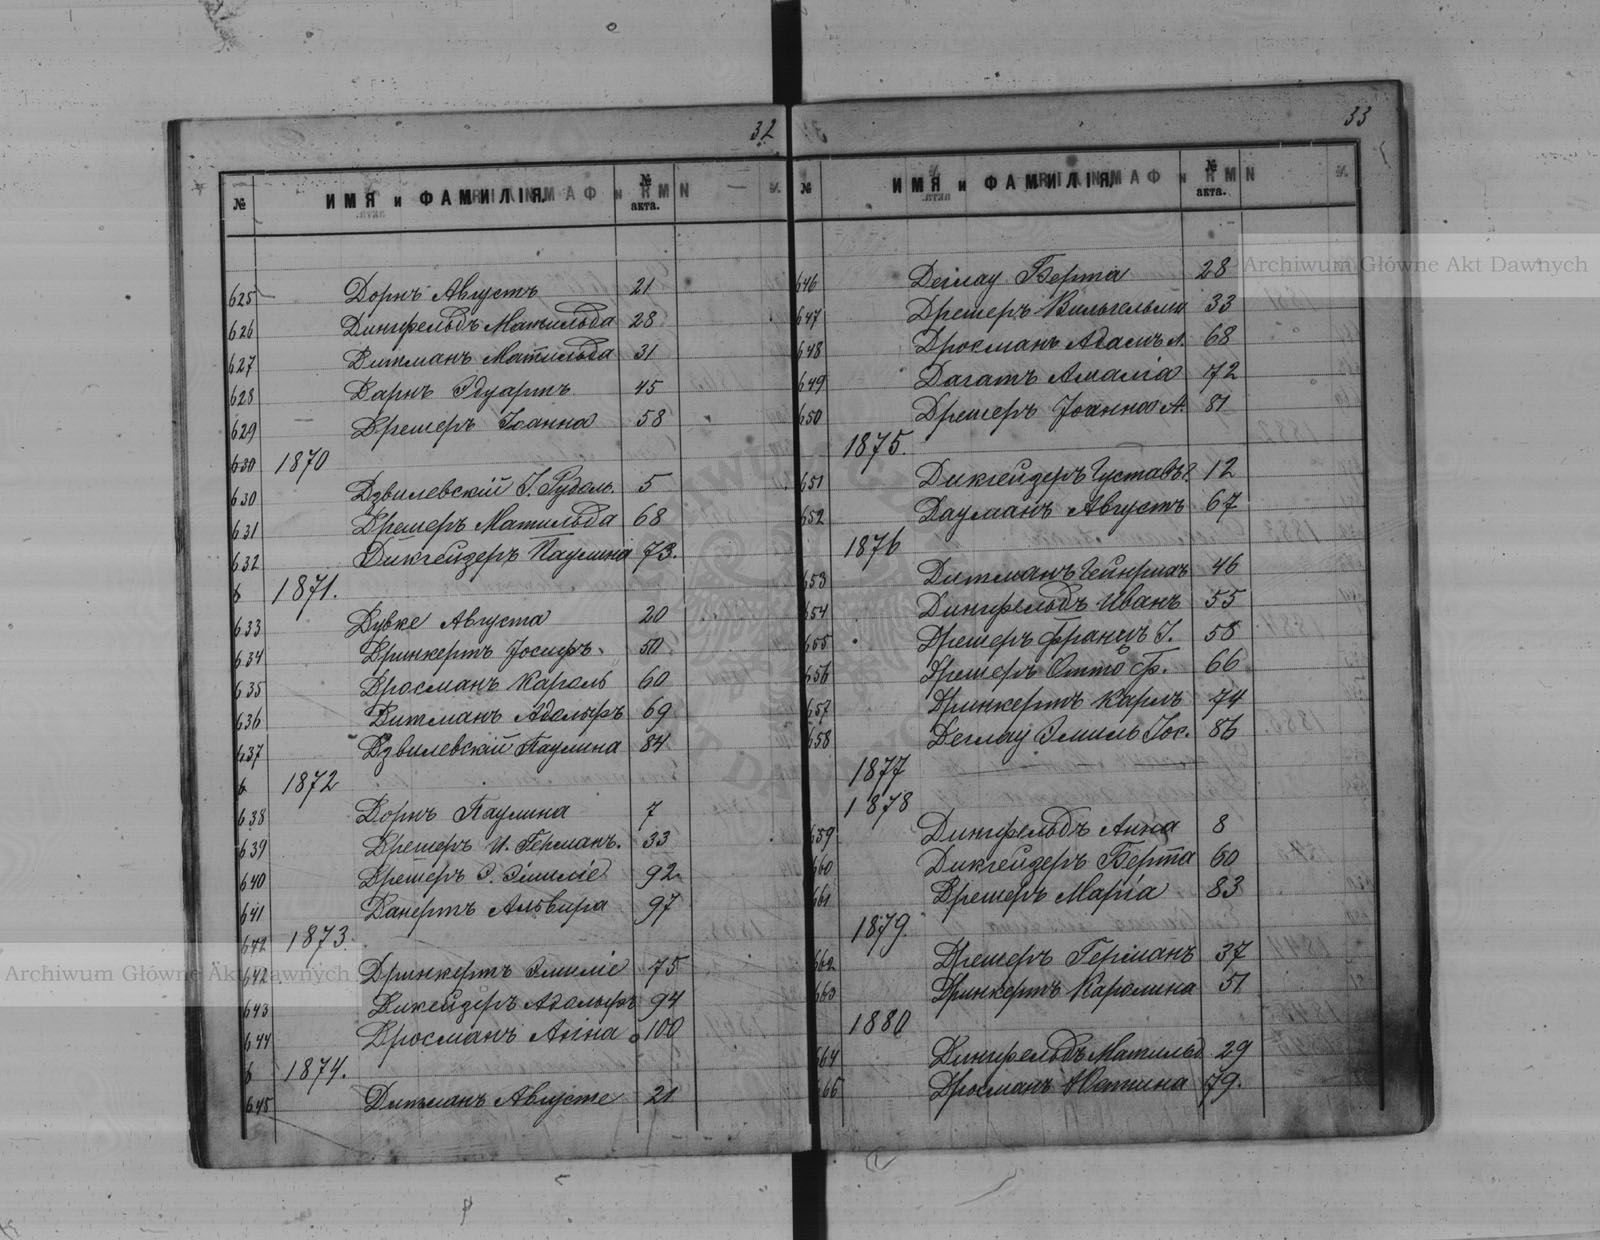 32
№ ИМЯ и ФАМИЛІЯ № акта.
625 Дорнъ Августъ 21
626 Дингфельдъ Матильда 28
627 Дитманъ Матильда 31
628 Дарнъ Эдуартъ 45
629 Дрешеръ Іоанна 58
630 1870
630 Дзвилевскій І. Рудоль. 5
631 Дрешеръ Матильда 68
632 Дикгейзеръ Паулина 73.
6 1871.
633 Дувке Августа 20
634 Дринкертъ Іосифъ. 50
635 Дросманъ Кароль 60
636 Дитманъ Адольфъ 69
637 Дзвилевскій Паулина 84
6 1872
638 Дорнъ Паулина 7
639 Дрешеръ И. Германъ. 33
640 Дрешеръ Э. Эмиліе 92
641 Данертъ Альвира 97
642 1873.
642 Дринкертъ Эмиліе 75
643 Дикейзеръ Адольфъ 94
644 Дросманъ Анна 100
6 1874.
645 Дитманъ Августе 21
33
№ ИМЯ и ФАМИЛІЯ № акта.
646 Деглау Берта 28
647 Дрешеръ Вильгельми 33
648 Дросманъ Адамъ Л. 68
649 Дагатъ Амалія 72
650 Дрешеръ Іоанна А. 81
1875.
651 Дикгейзеръ Густавъ 12
652 Дауманъ Августъ 67
1876
653 Дитманъ Гейнрихъ 46
654 Дингфельдъ Иванъ 55
655 Дрешеръ Францъ І. 58
656 Дрешеръ Отто Фр. 66
657 Дринкертъ Карлъ 74
658 Деглау Эмиль Іос. 86
1877
1878
659 Дингфельдъ Анна 8
660 Дикгейзеръ Берта 60
661 Дрешеръ Марія 83
1879.
662 Дрешеръ Германъ 37
663 Дринкертъ Каролина 51
1880
664 Дингфельдъ Матильд 29
665 Дросманъ 79.
Archiwum Główne Akt Dawnych
Archiwum Główne Akt Dawnych